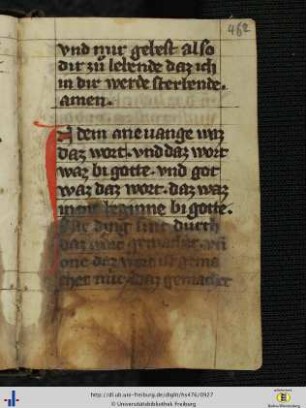 462
vnd mir gebest also
dir zů lebende daz ich
in dir werde sterbende.
amen.
IN dem aneuange waz
daz wort. vnd daz wort
waz bi gotte. vnd got
waz daz wort. daz waz
in me beginne bi gotte.
Alle ding sint durch
daz wort gemachet. vñ
one daz wort ist gema
chet nút. daz gemachet
http://dl.ub.uni-freiburg.de/diglit/hs476/0927
© Universitätsbibliothek Freiburg